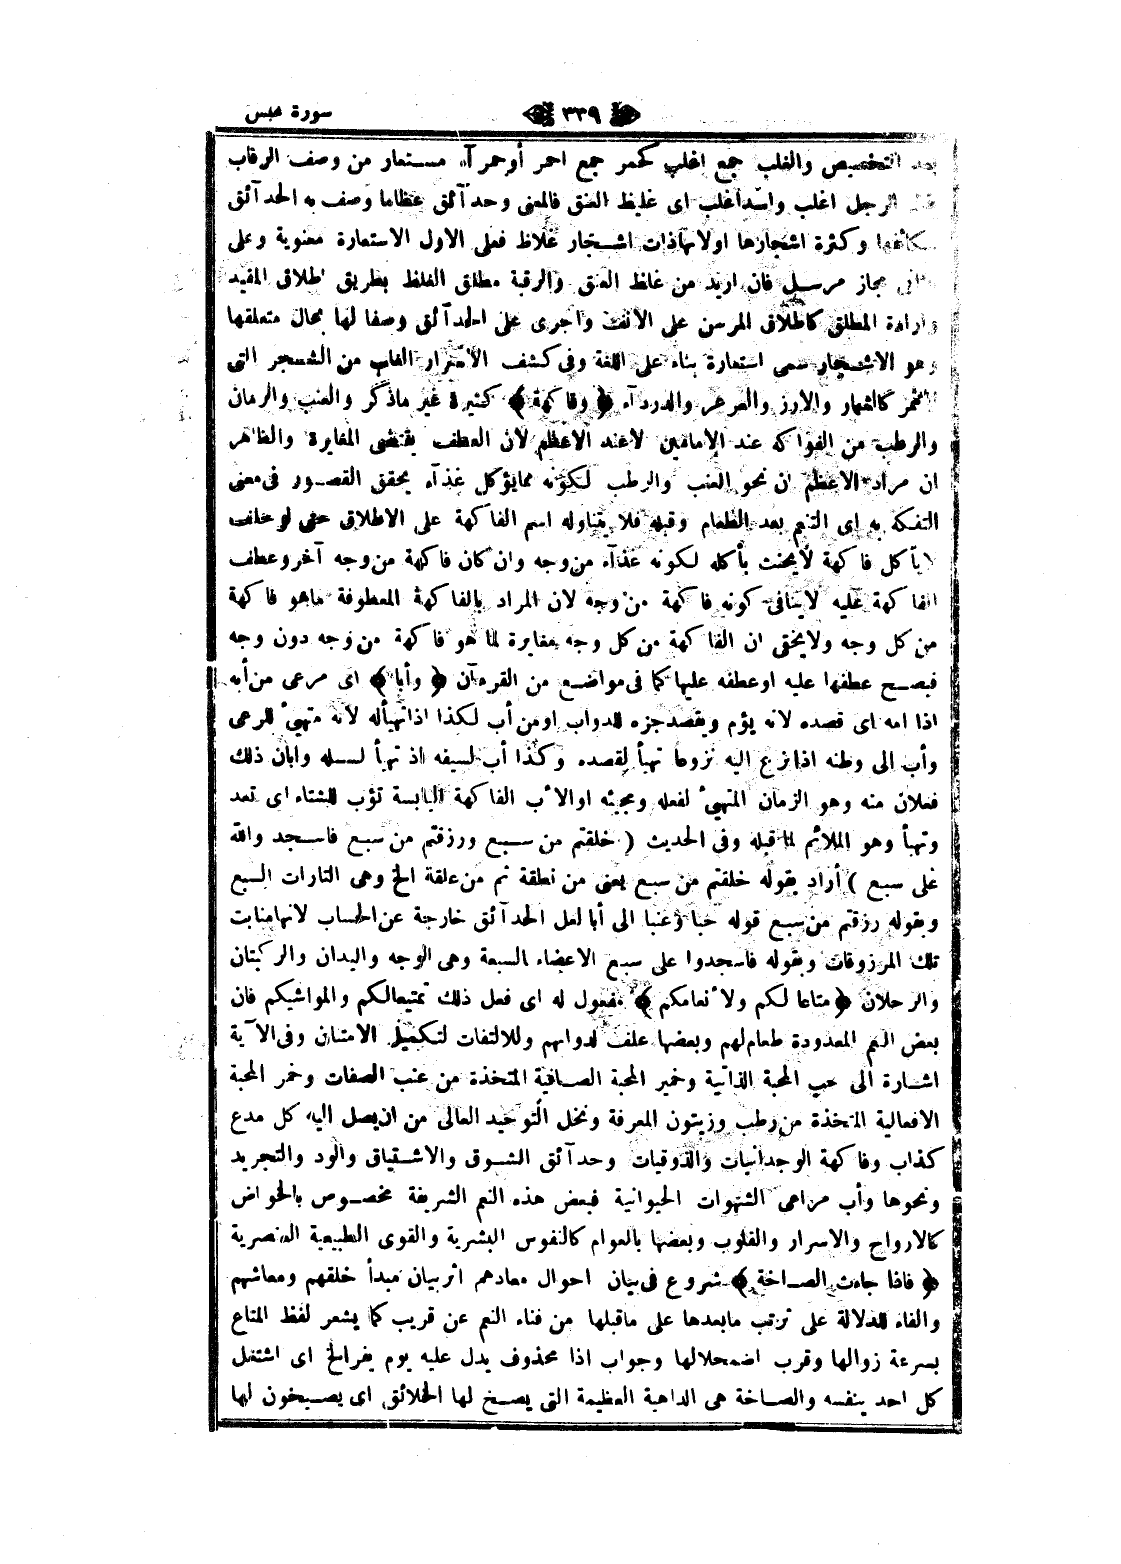 سورة عبس ٣٣٩
بعد التخصيص والغلب جمع اغلب كحمر جمع احمر أوحمرآء مستعار من وصف الرقاب
الرجل اغلب واسد اغلب اى غليظ العنق فالمعنى وحدآئق عظاما وصف به الحدآئق
لتكاثفها وكثرة اشجارها اولانهاذات اشجار غلاظ فعلى الاول الاستعارة معنوية وعلى
الثانى مجاز مرسل فان اريد من غلظ العنق والرقبة مطلق الغلظ بطريق اطلاق المقيد
وارادة المطلق كاطلاق المرسن على الانف واجرى على الحدآئق وصفا لها بحال متعلقها
وهو الاشجار سمى استعارة بناء على اللغة وفى كشف الاسرار الغلب من الشجر التى
لاتثمر كالشمار والارز والعرعر والدردآء ﴿ وفاكهة ﴾ كثيرة غير ماذكر والعنب والرمان
والرطب من الفواكه عند الإمامين لاعند الاعظم لأن العطف يقتضى المغايرة والظاهر
ان مراد الاعظم ان نحو العنب والرطب لكونه ممايؤكل غذآء يحقق القصور فى معنى
التفكه به اى التنعم بعد الطعام وقبله فلا يتناوله اسم الفاكهة على الاطلاق حتى لو حلف
لايأكل فاكهة لايحنث بأكله لكونه غذآء من وجه وان كان فاكهة من وجه آخر وعطف
الفاكهة عليه لاينافى كونه فاكهة من وجه لان المراد بالفاكهة المعطوفة ماهو فاكهة
من كل وجه ولايخفى ان الفاكهة من كل وجه مغايرة لما هو فاكهة من وجه دون وجه
فيصح عطفها عليه اوعطفه عليها كما فى مواضع من القرءآن ﴿ وأبا ﴾ اى مرعى من أبه
اذا امه اى قصده لانه يؤم ويقصد جزه للدواب اومن أب لكذا اذاتهيأله لانه متهيئ للرعى
وأب الى وطنه اذا نزع اليه نزوعا تهيأ لقصده وكذا أب لسيفه اذ تهيأ لسله وابان ذلك
فعلان منه وهو الزمان المتهيئ لفعله ومجيئه اوالأب الفاكهة اليابسة تؤب للشتاء اى تعد
وتهيأ وهو الملائم لما قبله وفى الحديث ( خلقتم من سبع ورزقتم من سبع فاسجد والله
على سبع ) أراد بقوله خلقتم من سبع يعنى من نطفة ثم من علقة الخ وهى التارات السبع
وبقوله رزقتم من سبع قوله حبا وعنبا الى أبا لعل الحدآئق خارجة عن الحساب لانهامنابت
تلك المرزوقات وبقوله فاسجدوا على سبع الاعضاء السبعة وهى الوجه واليدان والركبتان
والرجلان ﴿ متاعا لكم ولأنعامكم ﴾ مفعول له اى فعل ذلك تمتيعالكم والمواشيكم فان
بعض النعم المعدودة طعام لهم وبعضها علف لدوابهم وللالتفات لتكميل الامتنان وفى الآية
اشارة الى حب المحبة الذاتية وخمير المحبة الصافية المتخذة من عنب الصفات وخمر المحبة
الافعالية المتخذة من رطب وزيتون المعرفة ونخل التوحيد العالى من ان يصل اليه كل مدع
كذاب وفاكهة الوجدانيات والذوقيات وحدآئق الشوق والاشتياق والود والتجريد
ونحوها وأب مراعى الشهوات الحيوانية فبعض هذه النعم الشريفة مخصوص بالخواص
كالارواح والاسرار والقلوب وبعضها بالعوام كالنفوس البشرية والقوى الطبيعية العنصرية
﴿ فاذا جاءت الصاخة ﴾ شروع فى بيان احوال معادهم اثر بيان مبدأ خلقهم ومعاشهم
والفاء للدلالة على ترتب مابعدها على ماقبلها من فناء النعم عن قريب كما يشعر لفظ المتاع
بسرعة زوالها وقرب اضمحلالها وجواب اذا محذوف يدل عليه يوم يفر الخ اى اشتغل
كل احد بنفسه والصاخة هى الداهية العظيمة التى يصخ لها الخلائق اى يصيخون لها